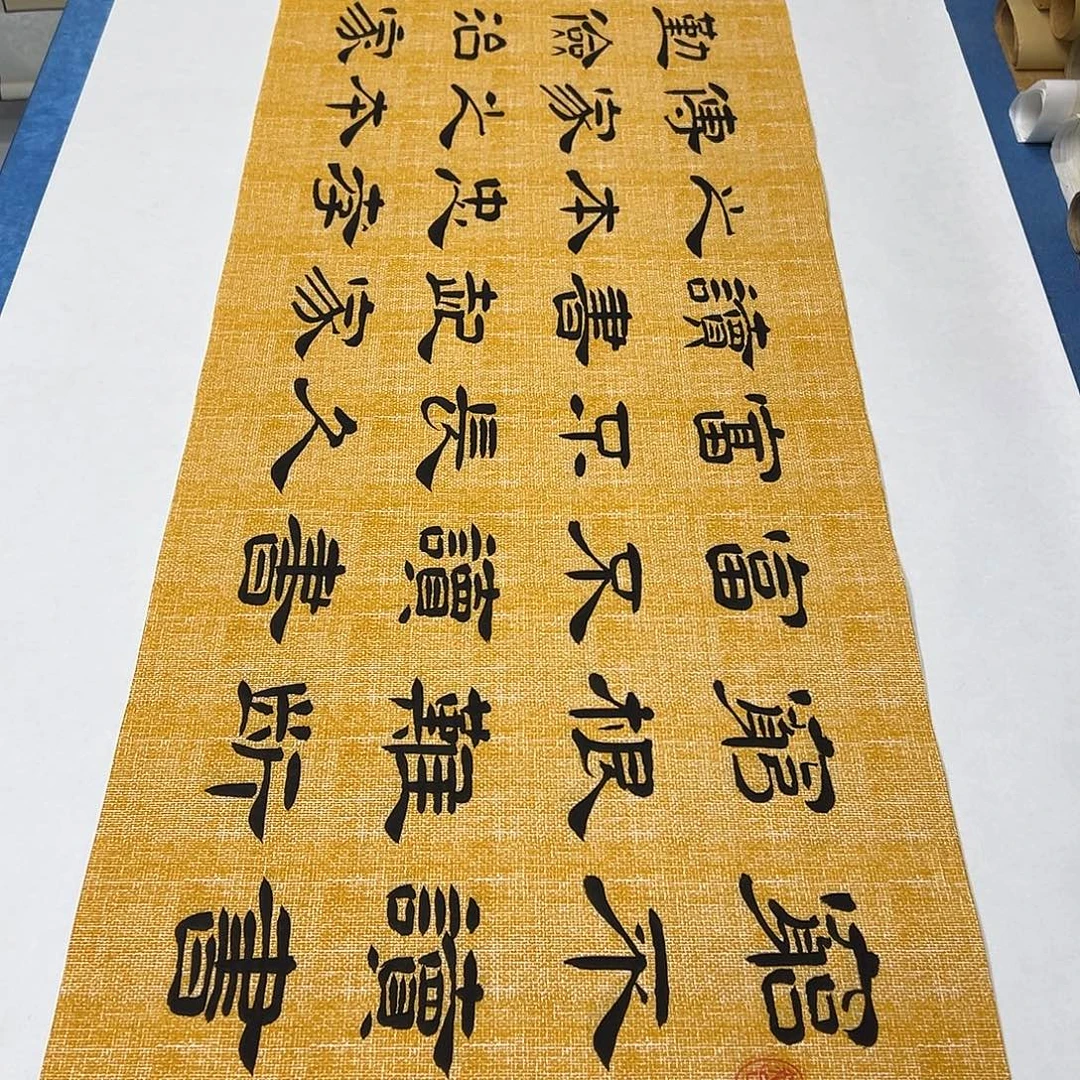 窮不讀書
窮根難斷
富不讀書
富不長久
讀書起家
之本忠孝
傳家之本
勤儉治家